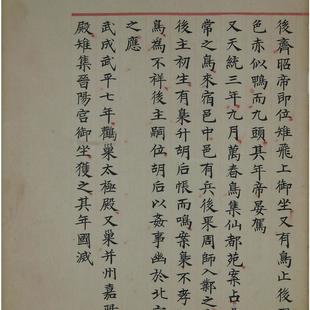 後齊昭帝即位雉飛上御坐又有鳥止後
色赤似鴨而九頭其年帝晏駕
又天統三年九月萬春鳥集仙都苑案占
常之鳥來宿邑中邑有兵後果周師入鄴之
後主初生有梟升胡后帳而鳴案梟不孝
鳥為不祥後主嗣位胡后以姦事幽於北
之應
武成武平七年鸛巢太極殿又巢并州嘉
殿雉集晉陽宮御坐獲之其年國滅